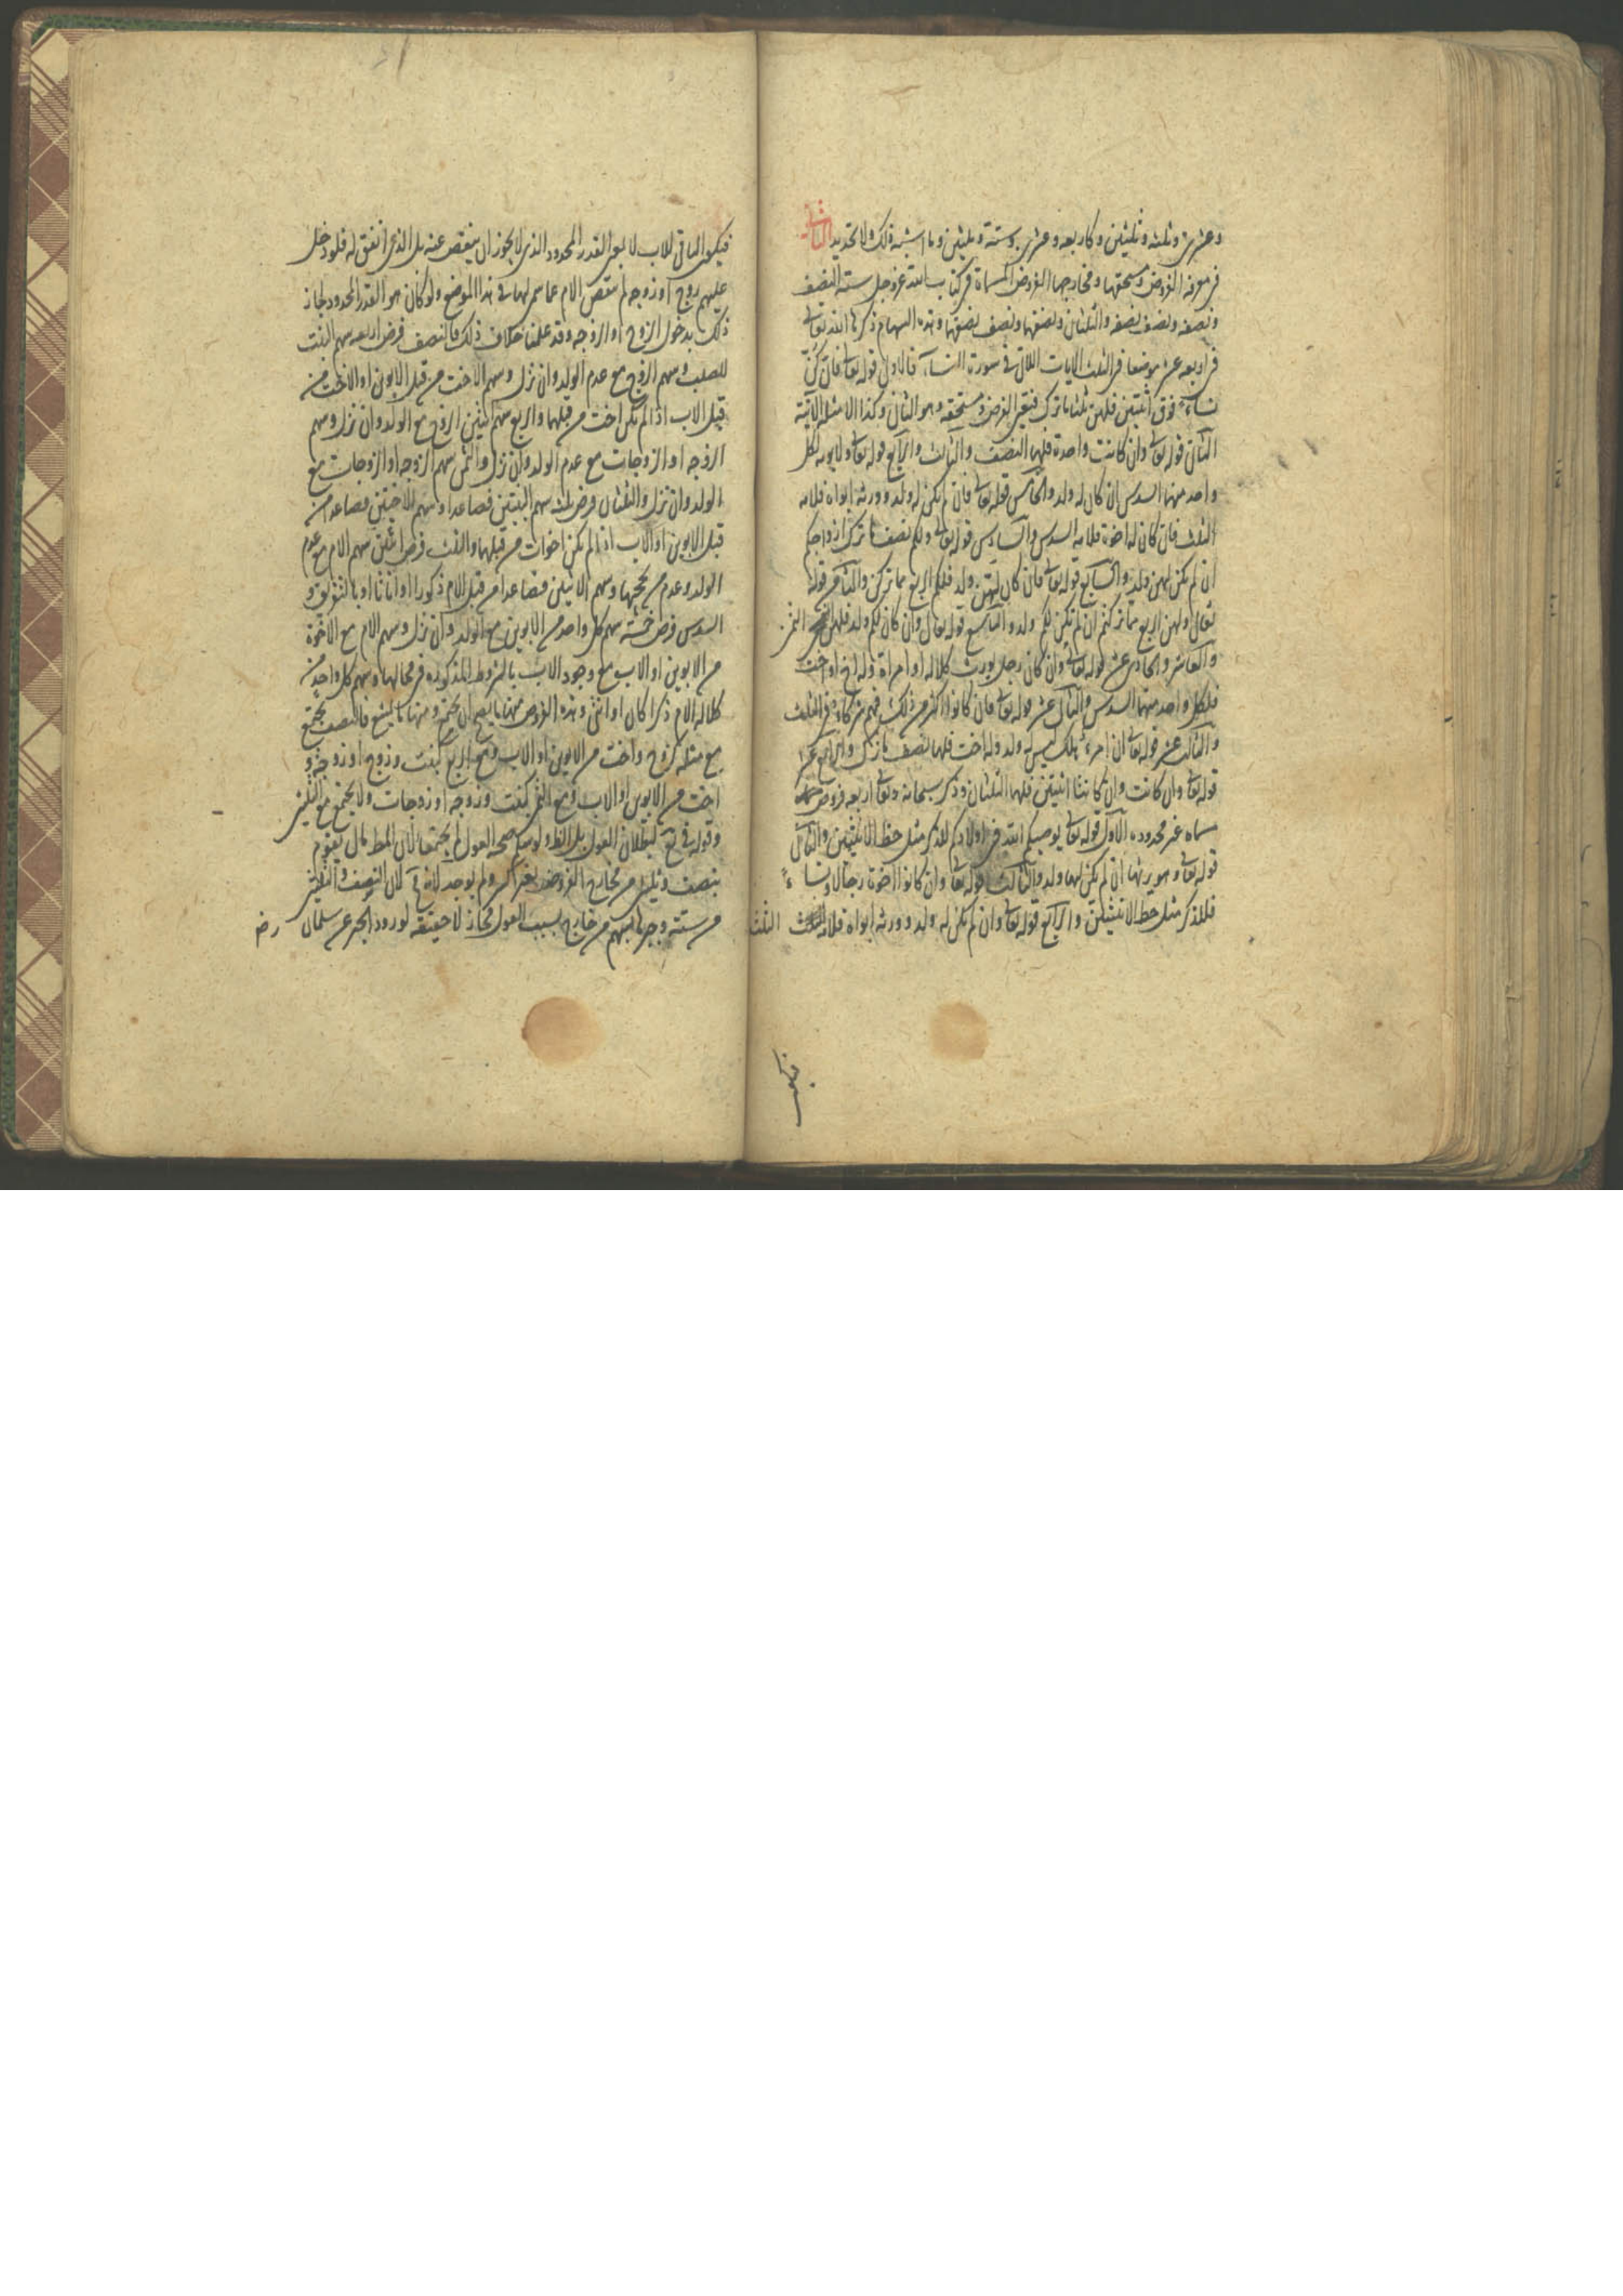 وعشرين وثلثه وثلثين وكاربعه وعشرين وستة وثلثين وما اشبه ذلك ولا تحديد الثاني
في معرفه الفروض ومستحقها ومخارجها الفروض المسماة في كتاب الله عز وجل ستة النصف
ونصفه ونصف نصفه والثلثان ونصفها ونصف نصفها وهذه السهام ذكرها الله تعالى
في اربعه عشر موضعا في الثلث الايات اللاتي في سورة النساء فالاول قوله تعا فان كن
نساء فوق اثنتين فلهن ثلثا ما ترك فتعين الفرض ومستحقه وهو الثلثان وكذا الامثله الاتية
الثاني قوله تعا وان كانت واحدة فلها النصف والثالث والرابع قوله تعا ولابويه لكل
واحد منهما السدس ان كان له ولد والخامس قوله تعا فان لم يكن له ولد وورثه ابواه فلامه
الثلث فان كان له اخوة فلامه السدس والسادس قوله تعا ولكم نصف ما ترك ازواجكم
ان لم يكن لهن ولد والسابع قوله تعا فان كان لهن ولد فلكم الربع مما تركن والثامن قوله
تعالى ولهن الربع مما تركتم ان لم يكن لكم ولد والتاسع قوله تعالى وان كان لكم ولد فلهن الثمن
والعاشر والحادي عشر قوله تعا وان كان رجل يورث كلالة او امراة وله اخ او اخت
فلكل واحد منهما السدس والثاني عشر قوله تعا فان كانوا اكثر من ذلك فهم شركاء في الثلث
والثالث عشر قوله تعا ان امرء هلك ليس له ولد وله اخت فلها نصف ما ترك والرابع عشر
قوله تعا وان كانت وان كانتا اثنتين فلهما الثلثان وذكر سبحانه وتعا اربعه فروض
مسماه غير محدوده الاول قوله تعا يوصيكم الله في اولادكم للذكر مثل حظ الانثيين والثاني
قوله تعا وهو يرثها ان لم يكن لها ولد والثالث قوله تعا وان كانوا اخوة رجالا ونساء
فللذكر مثل حظ الانثيين والرابع قوله تعا وان لم يكن له ولد وورثه ابواه فلامه الثلث الثلث
فيكون
فيكون الباقي للاب لا بمعنى القدر المحدود الذي لا يجوز ان ينقص عنه بل الذي اتفق له فلو دخل
عليهم زوج او زوجه لم تنقص الام عما سمى لها في هذا الموضع ولو كان هو القدر المحدود لجاز
ذلك بدخول الزوج او الزوجه وقد علمنا خلاف ذلك فالنصف فرض اربعه سهم البنت
للصلب وسهم الزوج مع عدم الولد وان نزل وسهم الاخت من قبل الابوين او الاخت من
قبل الاب اذا لم يكن اخت من قبلهما والربع سهم اثنين الزوج مع الولد وان نزل وسهم
الزوجه او الزوجات مع عدم الولد وان نزل والثمن سهم الزوجه او الزوجات مع
الولد وان نزل والثلثان فرض ثلثه سهم البنتين فصاعدا وسهم الاختين فصاعدا من
قبل الابوين او الاب اذا لم يكن اخوات من قبلهما والثلث فرض اثنين سهم الام مع عدم
الولد وعدم من يحجبها وسهم الاثنين فصاعدا من قبل الام ذكورا او اناثا او بالتفريق و
السدس فرض خمسه سهم كل واحد من الابوين مع الولد وان نزل وسهم الام مع الاخوة
من الابوين او الاب مع وجود الاب بالشروط المذكوره في محالها وسهم كل واحد من
كلاله الام ذكرا كان او انثى وهذه الفروض منها ما يصح ان يجتمع ومنها ما يمتنع فالنصف يجتمع
مع مثله كزوج واخت من الابوين او الاب ومع الربع كبنت وزوج او زوجه و
اخت من الابوين او الاب ومع الثمن كبنت وزوجه او زوجات ولا يجتمع مع الثلثين
وقوله لبطلان العول بل النظر صحه العول لم يجتمعا لان مال يقوم
بنصف وثلثين من مخارج الفروض بغير كسر ولم يوجد لان النصف والثلثين
من ستة بسبب العول مجاز لا حقيقه لورود الخبر عن سلمان رض